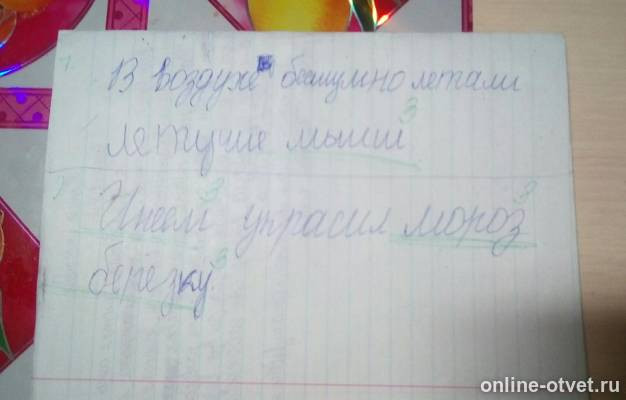 В воздухе бесшумно летали
летучие мыши 3
Инеем 3 украсил мороз 3
березку 3
online-otvet.ru